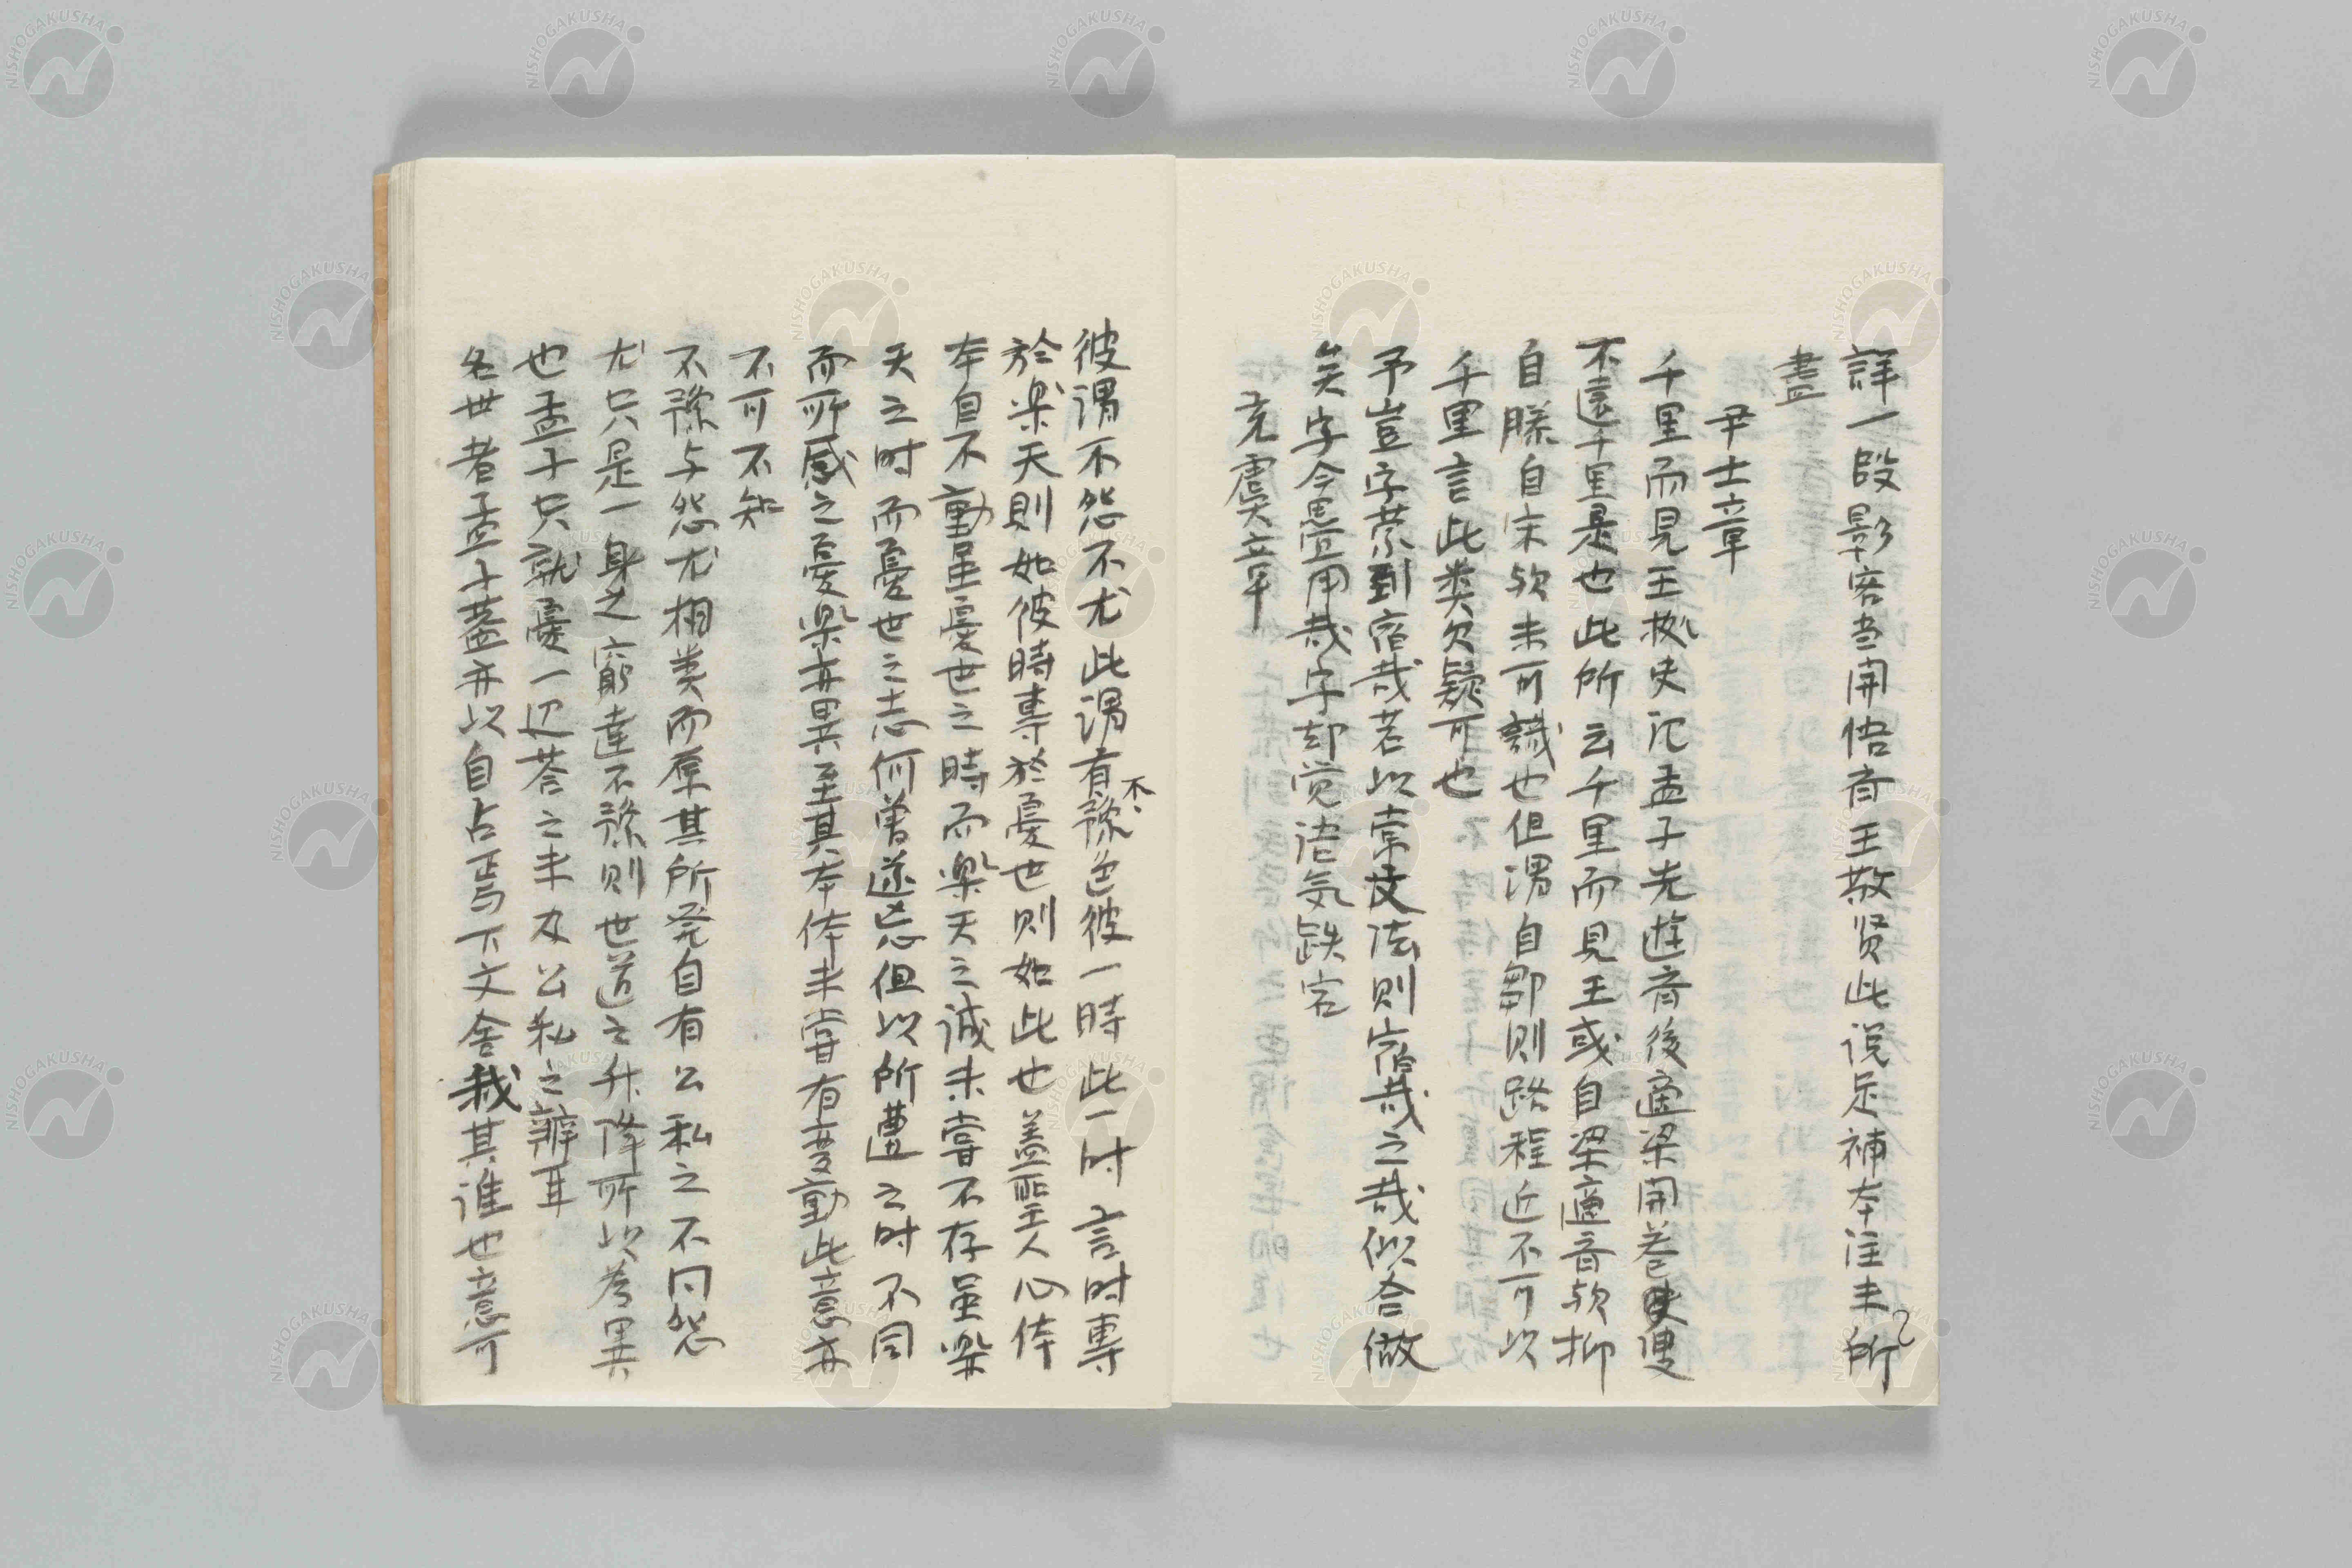 詳一段影客当開悟斉王敬賢此説足補本注未所
盡
尹士章
千里而見王拠史记孟子先遊斉後適梁開巻叟
不遠千里是也此所云千里而見王或自梁適斉欤抑
自滕自宋欤未可識也但謂自鄒則路程近不可以
千里言此类欠疑可也
予豈字蒙到宿哉若以常文法則宿哉之哉似合做
矣字今思置用哉字却覚语気跌宕
充虞章
彼謂不怨不尤此謂有不豫色彼一時此一时言时專
於楽天則如彼時專於憂世則如此也盖聖人心体
本自不動虽憂世之時而楽天之誠未嘗不存虽楽
天之时而憂世之志何曽遂忘但以所遭之时不同
而所感之憂楽亦異至其本体未嘗有变動此意亦
不可不知
不豫与怨尤相类而原其所発自有公私之不同怨
尤只是一身之窮達不豫則世道之升降所以為異
也孟子只就憂一辺荅之未及公私之辨耳
名世者孟子蓋亦以自占焉下文舍我其谁也意可
NISHOGAKUSHA